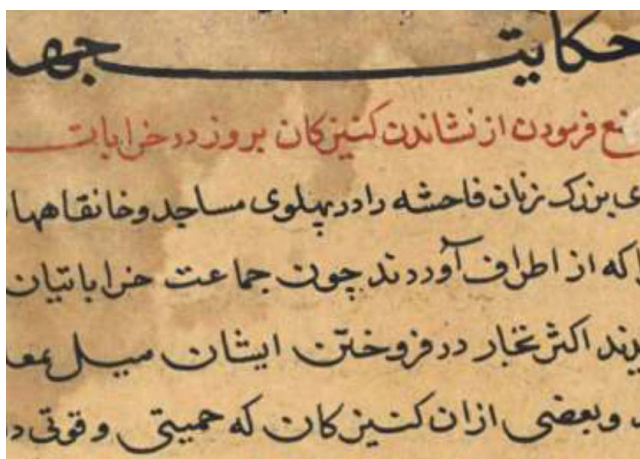 حکایت چهـ
ـنع فرمودن از نشاندن کنیزکان بروز در خرابات
ـی بزرک زنان فاحشه را در پهلوی مساجد و خانقاهها
ـا که از اطراف آوردند چون جماعت خراباتیان
ـرند اکثر تجار در فروختن ایشان میل بمعا
و بعضی ازان کنیزکان که حمیتی و قوتی د